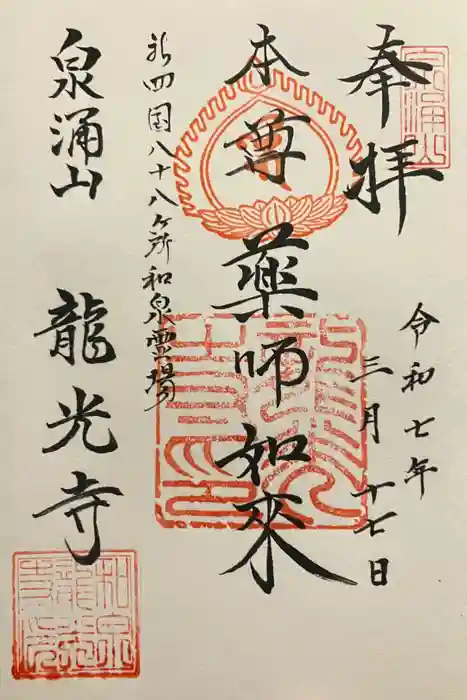 奉拝
令和七年
三月十七日
本尊薬師如來
新四国八十八ヶ所和泉霊場
泉涌山
龍光寺
泉涌山